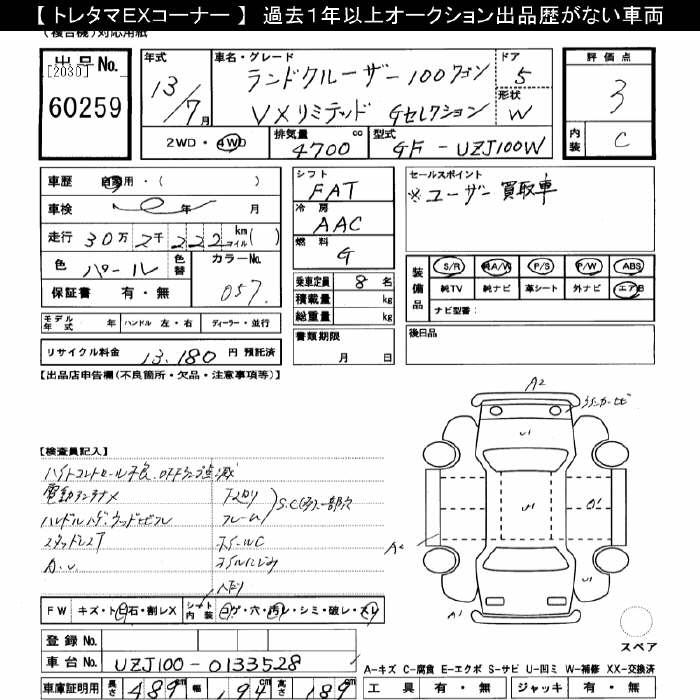 【 トレタマEXコーナー 】 過去1年以上オークション出品歴がない車両
(複合機)対応用紙
出品No.
[2030]
60259
年式
13/7月
車名・グレード
ランドクルーザー100ワゴン
VXリミテッド Gセレクション
ドア
5
形状
W
評価点
3
内装
C
2WD・4WD
排気量
4700 cc
型式
GF-UZJ100W
車歴 自家用・( )
車検 年 月
走行 30万2千222 km マイル( )
色 パール
色替
カラーNo.
057
保証書 有・無
モデル年式 年 ハンドル 左・右 ディーラー・並行
リサイクル料金 13,180 円 預託済
シフト
FAT
冷房
AAC
燃料
G
乗車定員 8 名
積載量 kg
総重量 kg
書類期限
月 日
セールスポイント
※ユーザー買取車
装備品
S/R 純A/W P/S P/W ABS
純TV 純ナビ 革シート 外ナビ エアB
ナビ型番:
後日品
【出品店申告欄(不良箇所・欠品・注意事項等)】
【検査員記入】
電動アンテナメ
スタッドレス
下廻り
フレーム
ホイールC
A2
U1
U1
U1
A2
A1
U1
FW キズ・ト ヒ石・割レX
シート内装 コゲ・穴・汚レ・シミ・破レ・スレ
登録No.
車台No. UZJ100-0133528
車庫証明用 長さ 489 cm 幅 194 cm 高さ 189
スペア
A-キズ C-腐食 E-エクボ S-サビ U-凹ミ W-補修 XX-交換済
工具 有・無 ジャッキ 有・無